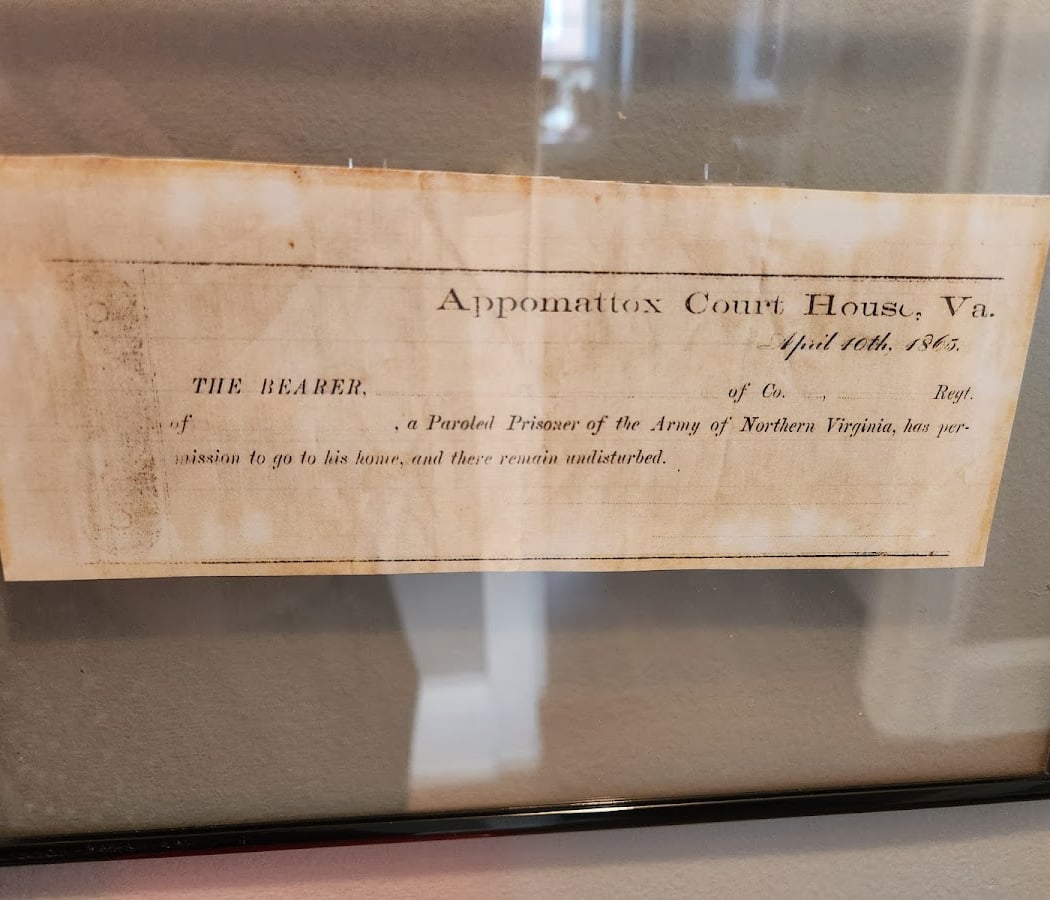 Appomattox Court House, Va.
April 10th, 1865.
THE BEARER, of Co. , Regt.
of , a Paroled Prisoner of the Army of Northern Virginia, has per-
mission to go to his home, and there remain undisturbed.